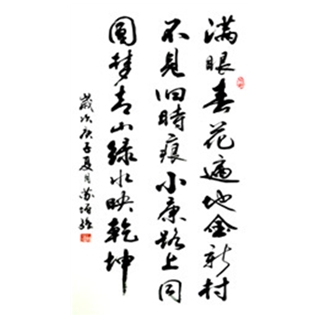 满眼春花遍地金新村
不见旧時痕小康路上同
圆梦青山绿水映乾坤
歲次庚子夏月